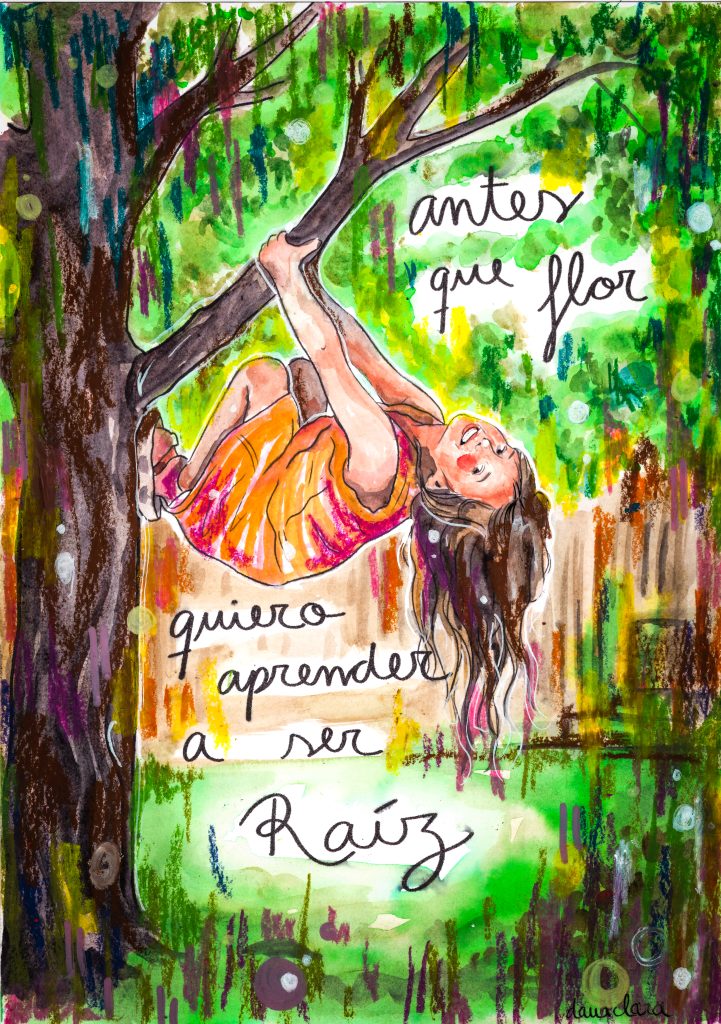 antes
que flor
quiero
aprender
a ser
Raíz